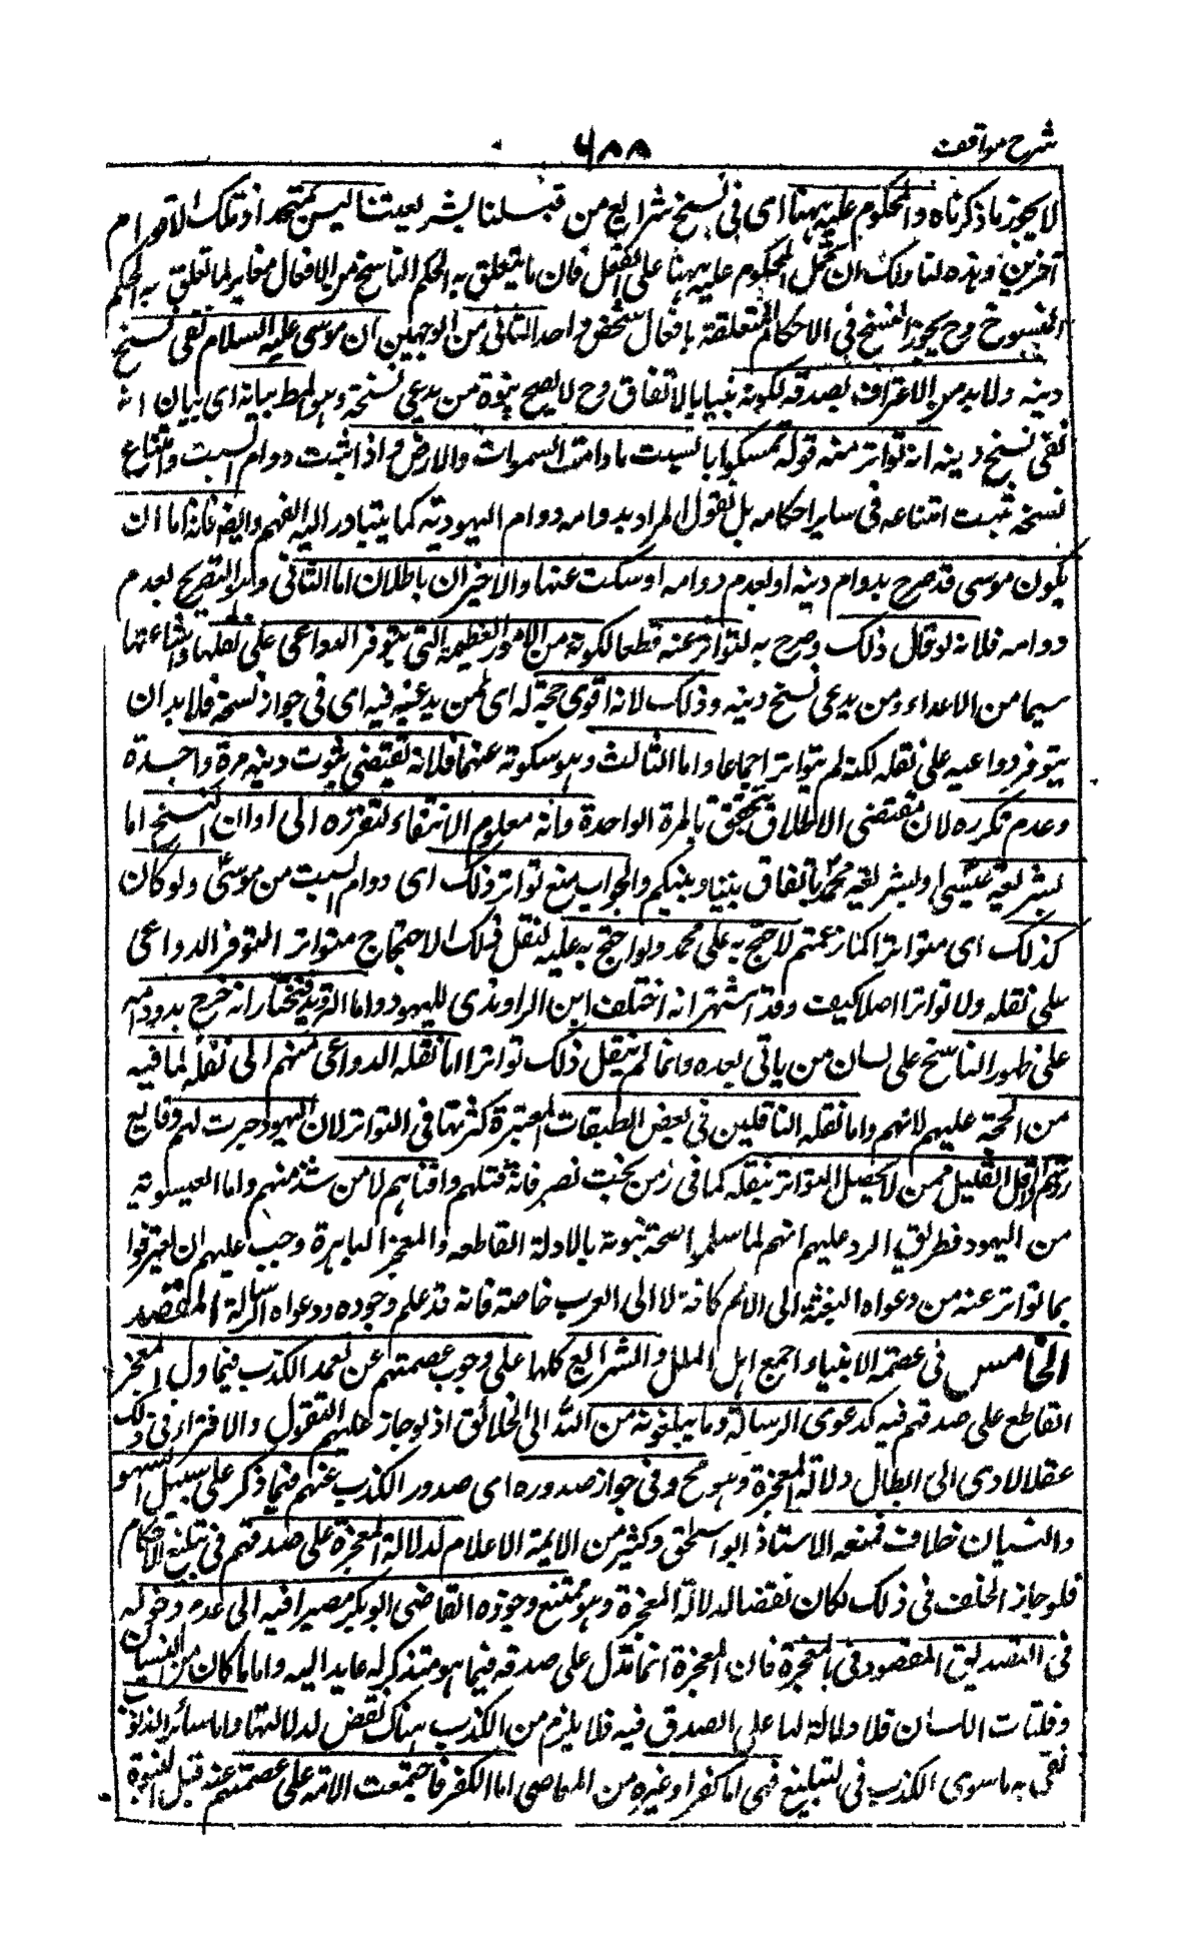 شرح مواقف
٦٨٨
لا يجوز ما ذكرناه والمحكوم عليه ههنا اى فى نسخ شرايع من قبلنا بشريعتنا ليس بمتحد اذ تلك لاقوام
آخرين وهذه لنا ولك ان تحمل المحكوم عليه ههنا على الفعل فان ما يتعلق به الحكم الناسخ من الافعال مغاير لما تعلق به الحكم
المنسوخ وح يجوز النسخ فى الاحكام المتعلقة بافعال شخص واحد الثانى من الوجهين ان موسى عليه السلام نفى نسخ
دينه ولابد من الاعتراف بصدقه لكونه نبيا بالاتفاق وح لا يصح نبوة من يدعى نسخه وهو المط بيانه اى بيان انه
نفى نسخ دينه انه تواتر منه قوله تمسكوا بالسبت ما دامت السموات والارض واذا ثبت دوام السبت وامتناع
نسخه ثبت امتناعه فى ساير احكامه بل نقول المراد بدوامه دوام اليهودية كما يتبادر اليه الفهم وايضه فانه اما ان
يكون موسى قد صرح بدوام دينه او بعدم دوامه او سكت عنها والاخيران باطلان اما الثانى وهو التصريح بعدم
دوامه فلانه لو قال ذلك وصرح به لتواتر عنه قطعا لكونه من الامور العظيمة التى يتوفر الدواعى على نقلها واشاعتها
سيما من الاعداء ومن يدعى نسخ دينه وذلك لانه اقوى حجة له اى لمن يدعيه فيه اى فى جواز نسخه فلابد ان
يتوفر دواعيه على نقله لكنه لم يتواتر اجماعا واما الثالث وهو سكوته عنهما فلانه تقتضى ثبوت دينه مرة واحدة
وعدم تكرره لان مقتضى الاطلاق يتحقق بالمرة الواحدة وانه معلوم الانتفاء لتقرره الى اوان النسخ اما
بشريعة عيسى او بشريعة محمد باتفاق بيننا وبينكم والجواب منع تواتر ذلك اى دوام السبت من موسى ولو كان
كذلك اى متواترا كما زعمتم لاحتج به على محمد ولو احتج به عليه لنقل ذلك الاحتجاج متواترا لتوفر الدواعى
على نقله ولا تواترا اصلا كيف وقد اشتهر انه اختلقه ابن الراوندى لليهود واما الترديد فنختار انه صرح بدوامه
على ظهور الناسخ على لسان من ياتى بعده وانما لم ينقل ذلك تواترا اما لقلة الدواعى منهم الى نقله لما فيه
من الحجة عليهم لانهم واما لقلة الناقلين فى بعض الطبقات المعتبرة كثرتها فى التواتر لان اليهود جرت لهم وقايع
ردتهم الى اقل القليل ممن لا يحصل التواتر بنقله كما فى زمن بخت نصر فانه قتلهم وافناهم الا من شذ منهم واما العيسوية
من اليهود فطريق الرد عليهم انهم لما سلموا صحة نبوته بالادلة القاطعه والمعجزة الباهرة وجب عليهم ان يعترفوا
بما تواتر عنه من دعواه البعثة الى الامم كافة لا الى العرب خاصة فانه قد علم وجوده ودعواه الرسالة المقصد
الخامس فى عصمة الانبياء اجمع اهل الملل والشرايع كلها على وجوب عصمتهم عن تعمد الكذب فيما دل المعجز
القاطع على صدقهم فيه كدعوى الرسالة وما يبلغونه من الله الى الخلائق اذ لو جاز عليهم التقول والافتراء فى ذلك
عقلا لادى الى ابطال دلالة المعجزة وهو مح وفى جواز صدوره اى صدور الكذب عنهم فيما ذكر على سبيل السهو
والنسيان خلاف فمنعه الاستاذ ابو اسحق وكثير من الايمة الاعلام لدلالة المعجزة على صدقهم فى تبليغ الاحكام
فلو جاز الخلف فى ذلك لكان نقضا لدلالة المعجزة وهو ممتنع وجوزه القاضى ابو بكر مصيرا فيه الى عدم دخوله
فى التصديق المقصود فى المعجزة فان المعجزة انما تدل على صدقه فيما هو متذكر له عايد اليه واما ما كان من النسيان
وفلتات اللسان فلا دلالة لها على الصدق فيه فلا يلزم من الكذب هناك نقض لدلالتها واما سائر الذنوب
نعى به ما سوى الكذب فى التبليغ فهى اما كفر او غيره من المعاصى اما الكفر فاجتمعت الامة على عصمتهم عنه قبل النبوة